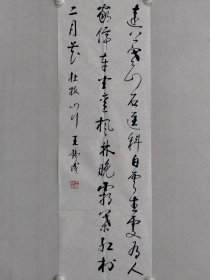 遠上寒山石徑斜白雲生處有人
家停車坐愛楓林晚霜葉紅於
二月花 杜牧 山行 王